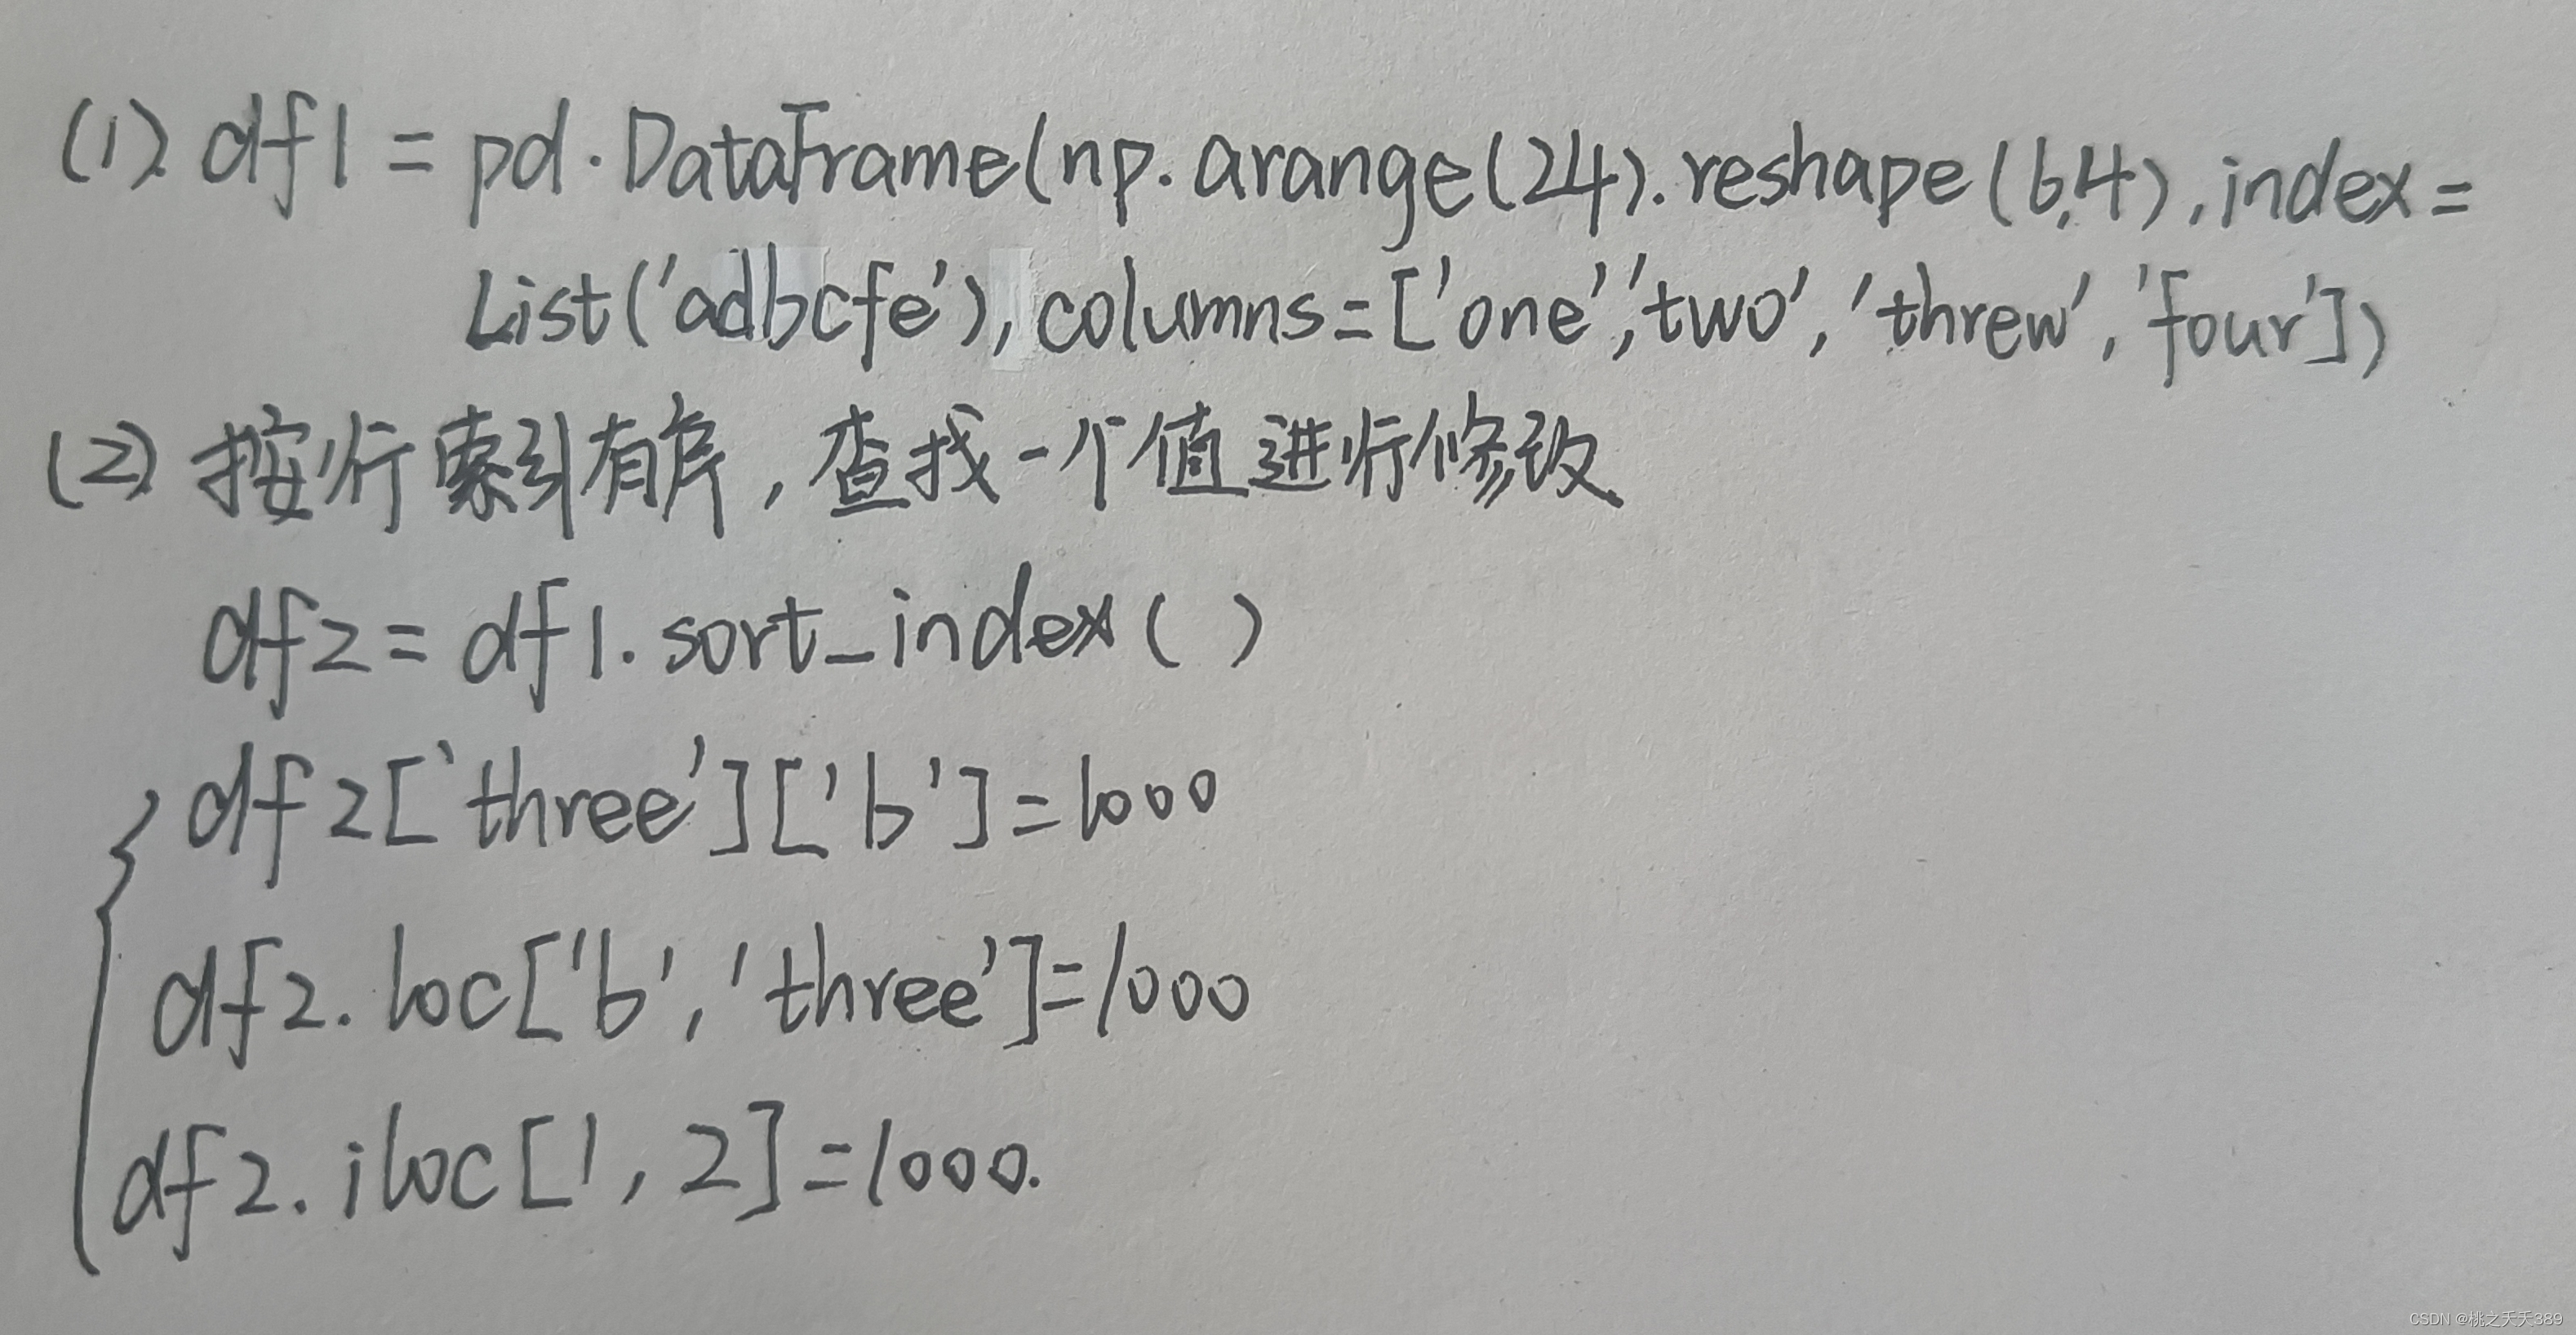 (1). df1 = pd.DataFrame(np.arange(24).reshape(6,4),index=
List('adbcfe'),columns=['one','two','threw','four'])
(2) 按行索引有序，查找一个值进行修改
df2=df1.sort_index()
df2['three']['b']=1000
df2.loc['b','three']=1000
df2.iloc[1,2]=1000.
CSDN @桃之夭夭389